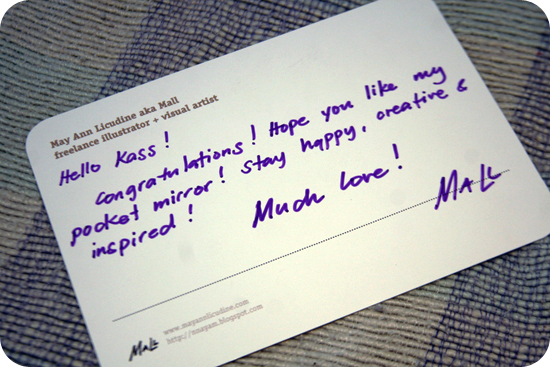 May Ann Licudine aka Mall
freelance illustrator + visual artist
Hello Kass!
Congratulations! Hope you like my
pocket mirror! Stay happy, creative &
inspired!
Much love!
MALL
www.mayannlicudine.com
http://nnayam.blogspot.com
MALL